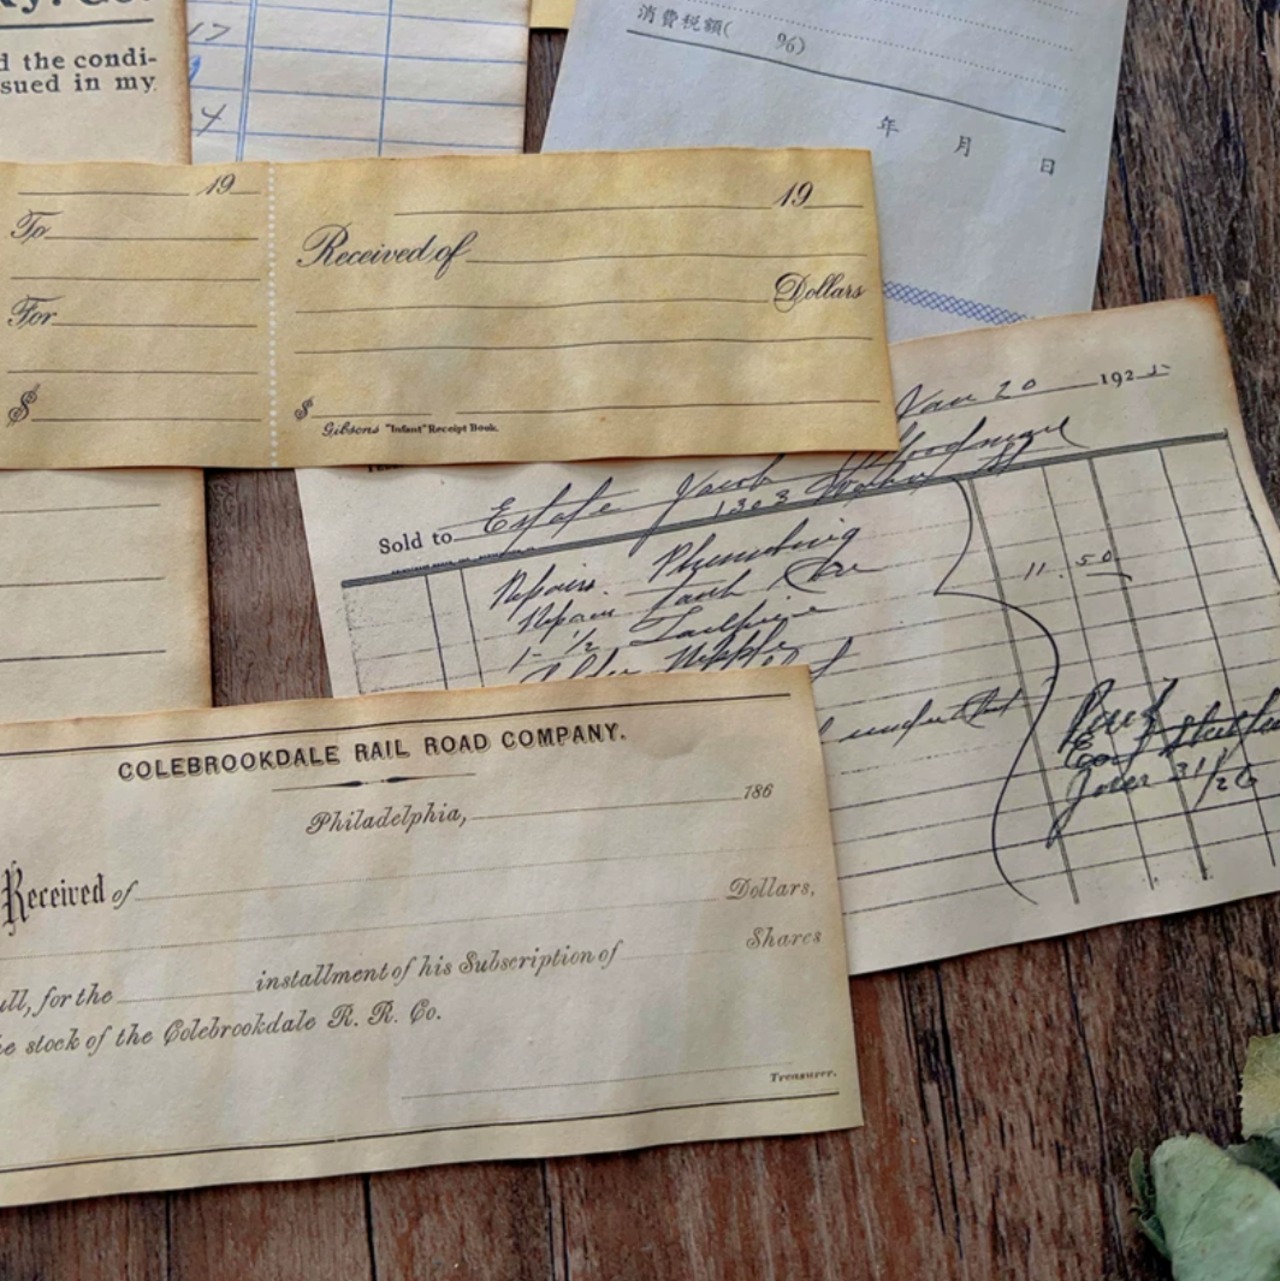 d the condi-
sued in my
17
4
消費税額( %)
年 月 日
19
To
For
$
19
Received of
Dollars
$
Gibsons "Infant" Receipt Book.
Jan 20 192
Sold to Estate Jacob
1303
Repairs. Plumbing
Repair Tank
1- 1/2 Tailpiece
11.50
Paid
31/26
COLEBROOKDALE RAIL ROAD COMPANY.
Philadelphia, 186
Received of
Dollars,
Shares
ull, for the installment of his Subscription of
he stock of the Colebrookdale R. R. Co.
Treasurer.